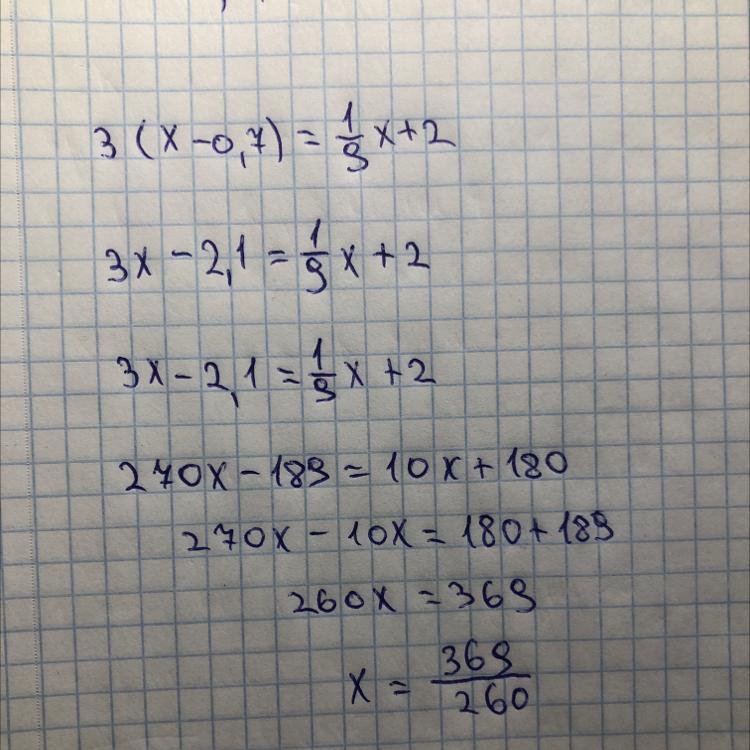 3(x-0,7)=1/9x+2
3x-2,1=1/9x+2
3x-2,1=1/9x+2
270x-189=10x+180
270x-10x=180+189
260x=369
x=369/260